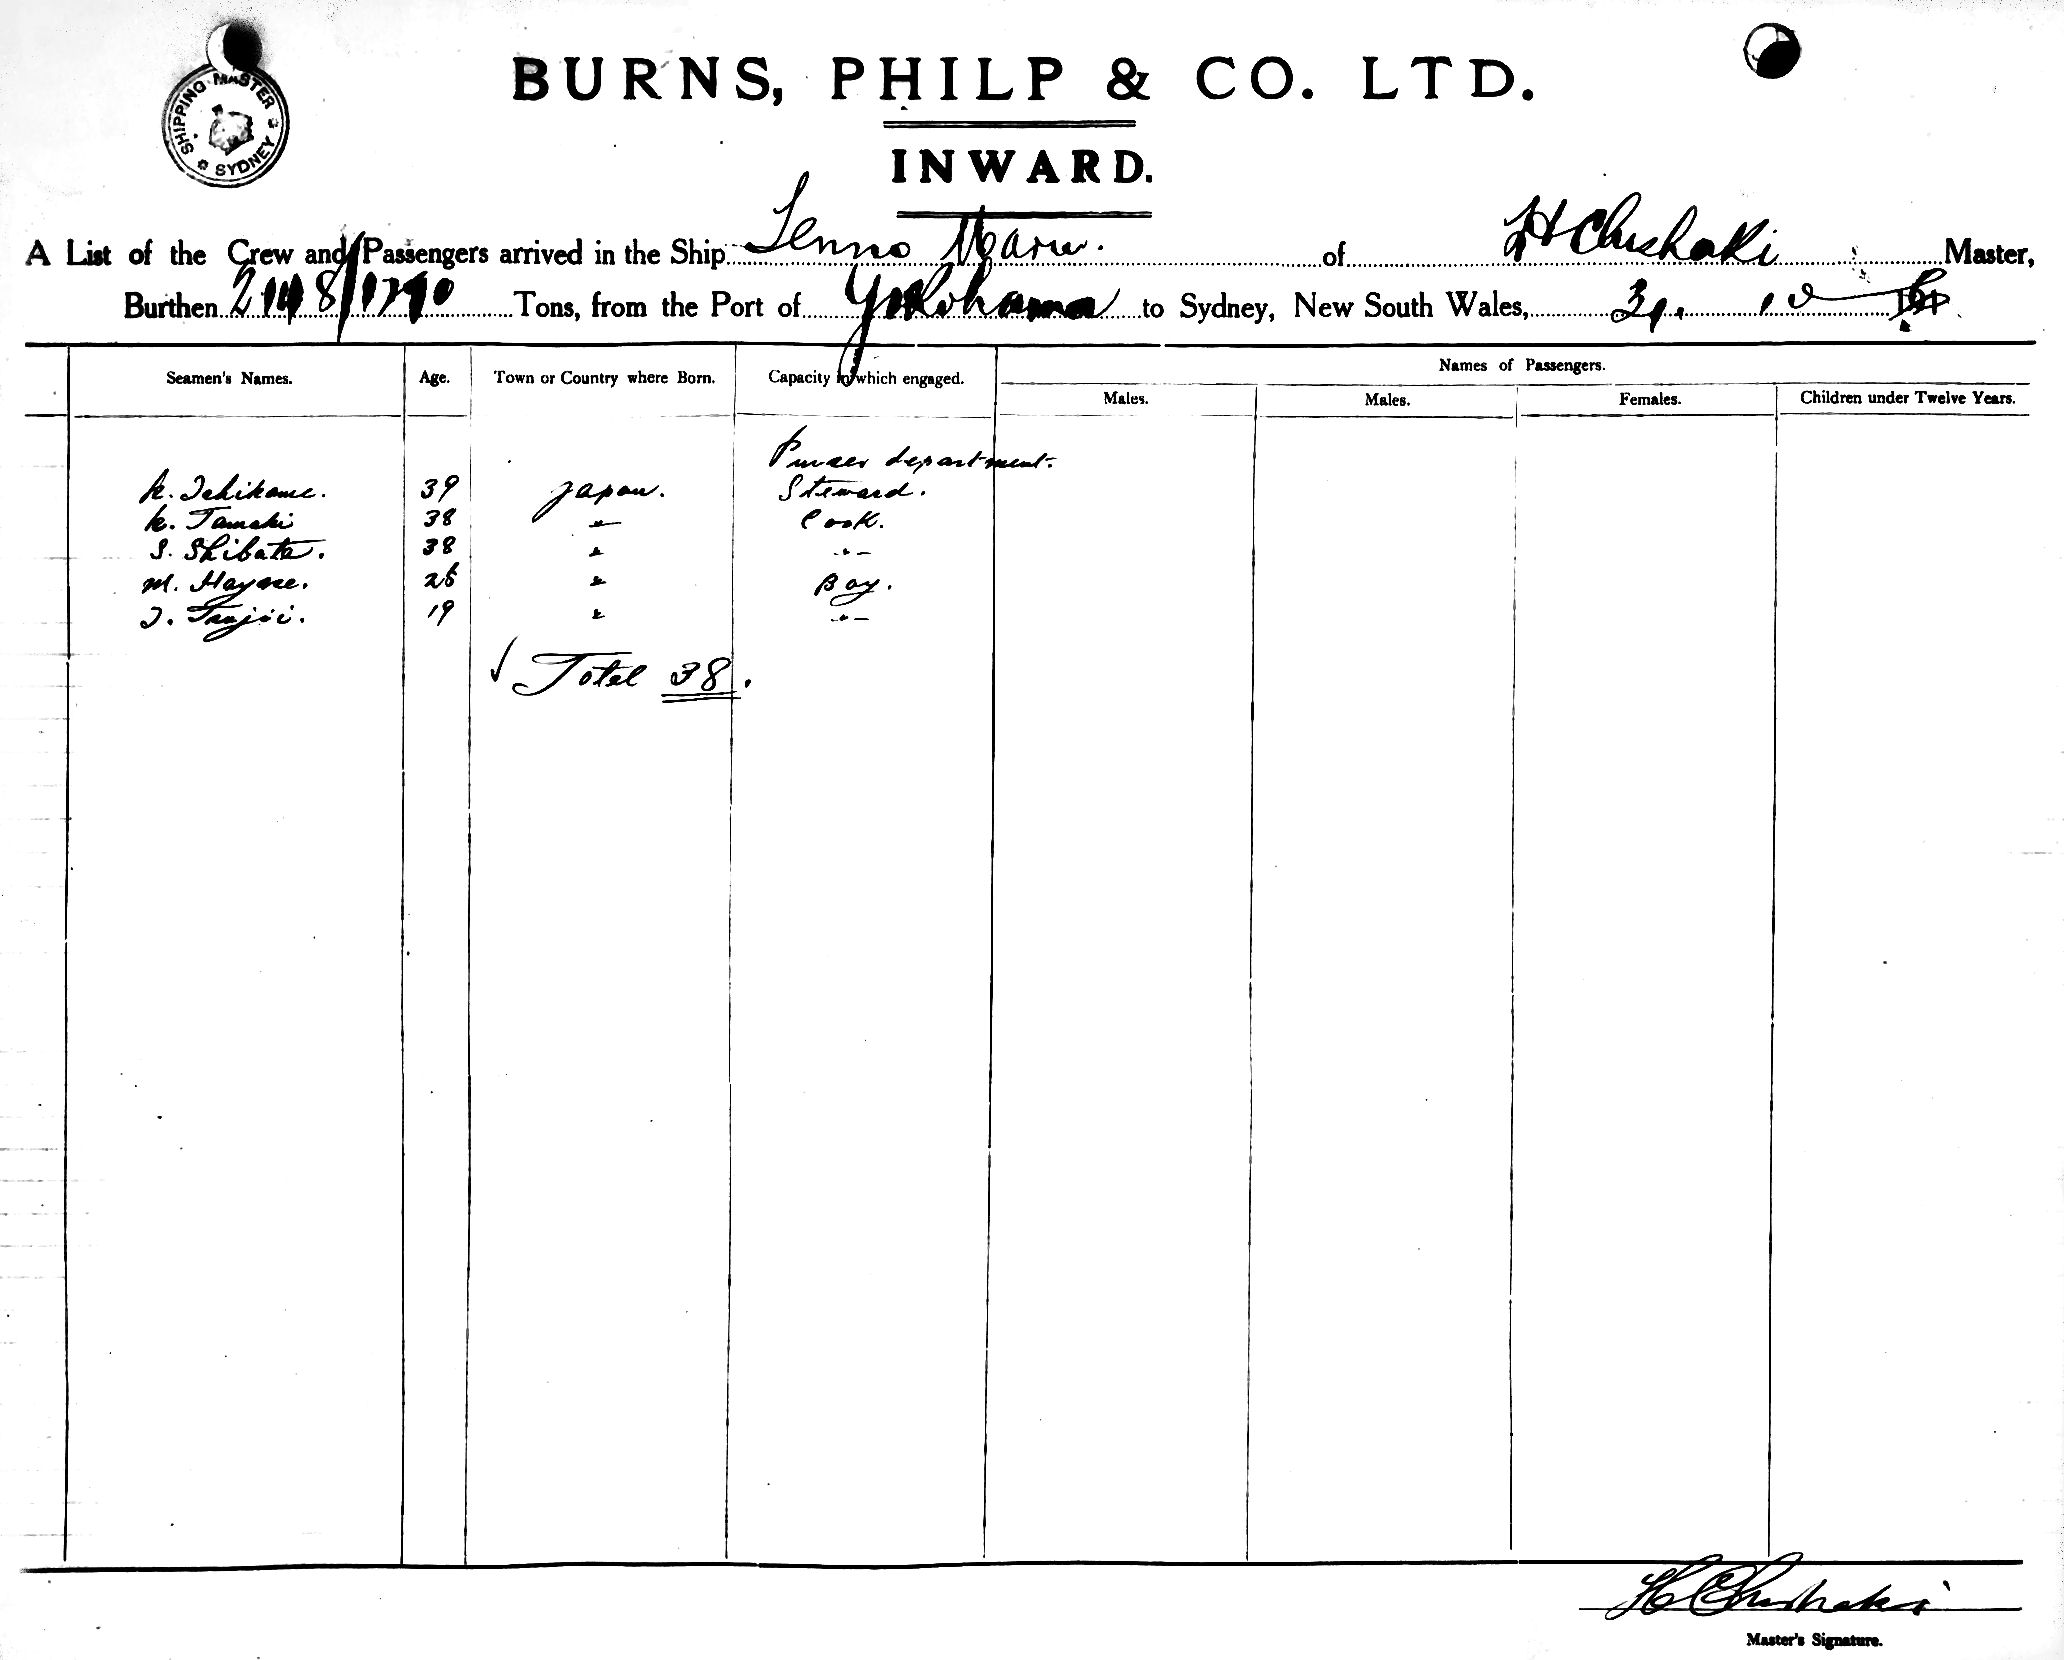 SHIPPING MASTER SYDNEY
BURNS, PHILP & CO. LTD.
INWARD.
A List of the Crew and Passengers arrived in the Ship Tenno Maru. of H Chushaki Master,
Burthen Tons, from the Port of Yokohama to Sydney, New South Wales, 31. 10
Seamen's Names. Age. Town or Country where Born. Capacity in which engaged. Names of Passengers.
Males. Males. Females. Children under Twelve Years.
Purser department.
K. 39 Japan. Steward.
K. Tamaki 38 " Cook.
S. Shibata. 38 " "
M. 26 " Boy.
19 " "
✓ Total 38.
H Chushaki
Master's Signature.